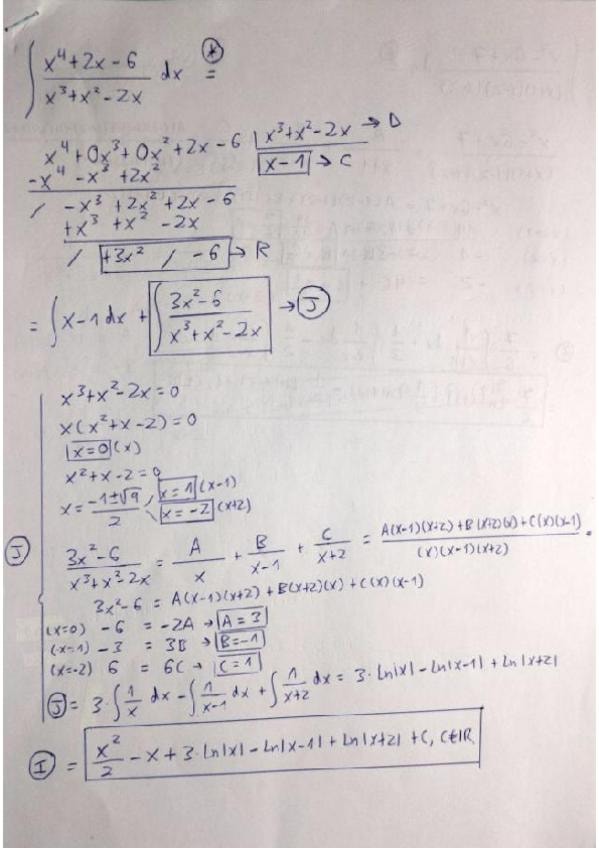 ∫ (x⁴+2x-6)/(x³+x²-2x) dx =^(*)
x⁴+0x³+0x²+2x-6 | x³+x²-2x → D
-x⁴ -x³ +2x² | x-1 → C
/ -x³ +2x² +2x -6
+x³ +x² -2x
/ +3x² / -6 → R
= ∫ x-1 dx + ∫ (3x²-6)/(x³+x²-2x) → J
x³+x²-2x=0
x(x²+x-2)=0
x=0 (x)
x²+x-2=0
x = (-1±√9)/2 x=1 (x-1)
x=-2 (x+2)
J (3x²-6)/(x³+x²-2x) = A/x + B/(x-1) + C/(x+2) = (A(x-1)(x+2)+B(x+2)(x)+C(x)(x-1))/((x)(x-1)(x+2)) .
3x²-6 = A(x-1)(x+2)+B(x+2)(x)+C(x)(x-1)
(x=0) -6 = -2A → A=3
(x=1) -3 = 3B → B=-1
(x=-2) 6 = 6C → C=1
J = 3·∫ 1/x dx - ∫ 1/(x-1) dx + ∫ 1/(x+2) dx = 3·ln|x| - ln|x-1| + ln|x+2|
I = x²/2 - x + 3·ln|x| - ln|x-1| + ln|x+2| + C, C∈ℝ